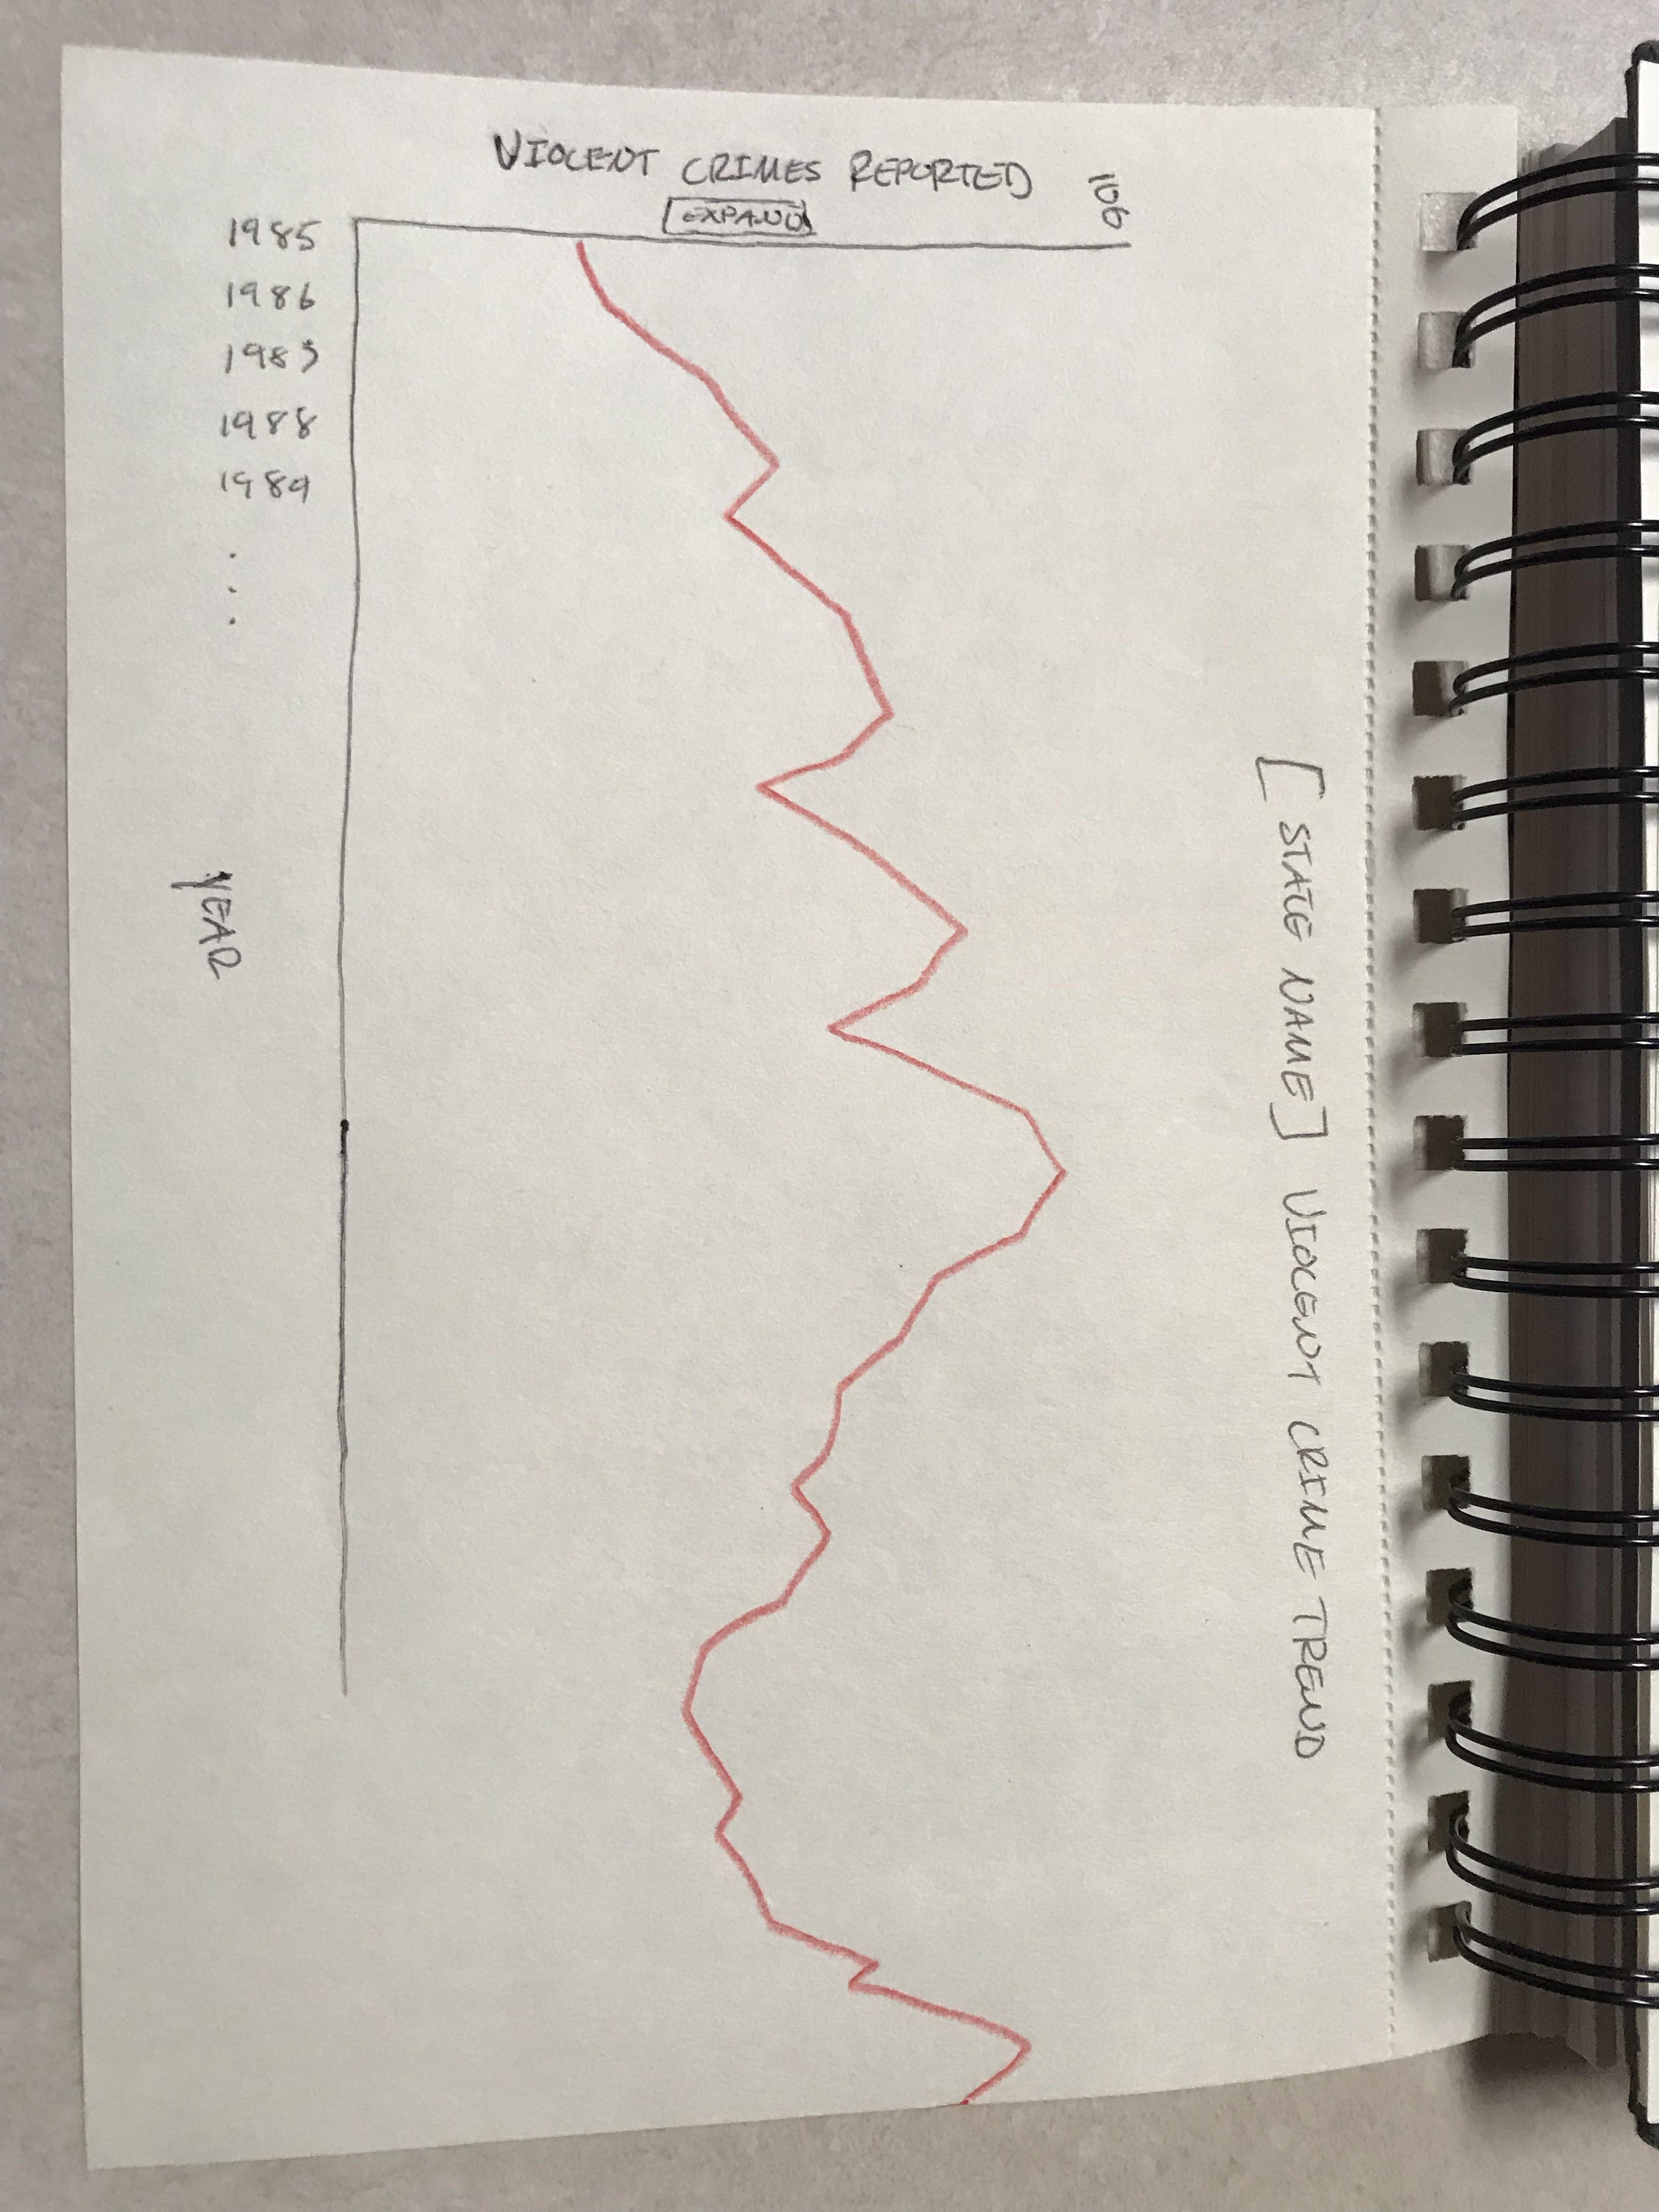 [STATE NAME] VIOLENT CRIME TREND
106
VIOLENT CRIMES REPORTED
EXPAND
1985
1986
1983
1988
1989
...
YEAR